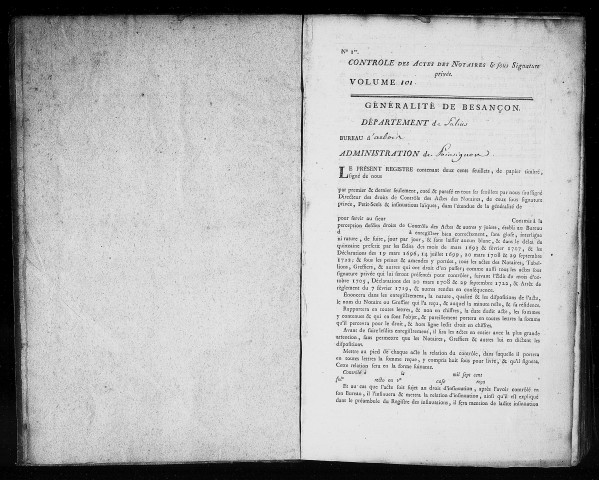 N° 1er.
CONTROLE DES ACTES DES NOTAIRES & sous Signature
privée.
VOLUME 101.
GÉNÉRALITÉ DE BESANÇON.
DÉPARTEMENT de Salins
BUREAU d'arbois
ADMINISTRATION de Poinsignon
LE PRÉSENT REGISTRE contenant deux cens feuillets, de papier timbré,
signé de nous
par premier & dernier seulement, coté & parafé en tous ses feuillets par nous soussigné
Directeur des droits de Contrôle des Actes des Notaires, de ceux sous signature
privée, Petit-Scels & insinuations laïques, dans l'étendue de la généralité de
pour servir au sieur Commis à la
perception desdits droits de Contrôle des Actes & autres y joints, établi au Bureau
d à enregistrer bien correctement, sans glose, interligne
ni rature, de suite, jour par jour, & sans laisser aucun blanc, & dans le délai de
quinzaine prefcrit par les Edits des mois de mars 1693 & février 1707, & les
Déclarations des 19 mars 1696, 14 juillet 1699, 20 mars 1708 & 29 septembre
1722; & sous les peines & amendes y portées, tous les actes des Notaires, Tabel-
lions, Greffiers, & autres qui ont droit d'en passer; comme aussi tous les actes sous
signature privée qui lui seront présentés pour contrôler, suivant l'Edit du mois d'oc-
tobre 1705, Déclarations des 20 mars 1708 & 29 septembre 1722, & Arrêt de
réglement du 7 février 1719, & autres rendus en conséquence.
Enoncera dans les enregistremens, la nature, qualité & les dispositions de l'acte,
le nom du Notaire ou Greffier qui l'a reçu, & auquel la minute reste, & sa résidence.
Rapportera en toutes lettres, & non en chiffres, la date dudit acte, les sommes
y contenues & qui en font l'objet, & pareillement portera en toutes lettres la somme
qu'il percevra pour le droit, & hors ligne lesdits droits en chiffres.
Avant de faire lesdits enregistremens, il lira les actes en entier avec la plus grande
attention, sans permettre que les Notaires, Greffiers & autres lui en dictent les
dispositions.
Mettra au pied de chaque acte la relation du contrôle, dans laquelle il portera
en toutes lettres la somme reçue, y compris huit sous pour livre, & qu'il signera.
Cette relation sera en la forme suivante.
Contrôlé à le mil sept cent
fol° recto ou v° case reçu
Et au cas que l'acte soit sujet au droit d'insinuation, après l'avoir contrôlé en
son Bureau, il l'insinuera & mettra la relation d'insinuation, ainsi qu'il est expliqué
dans le préambule du Registre des insinuations, il sera mention de ladite insinuation